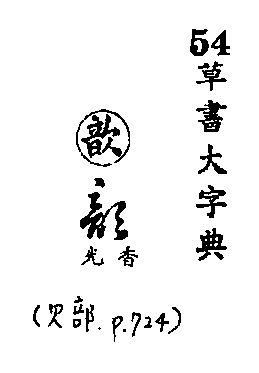 54
草書大字典
歆
歆
香光
(欠部. p.724)